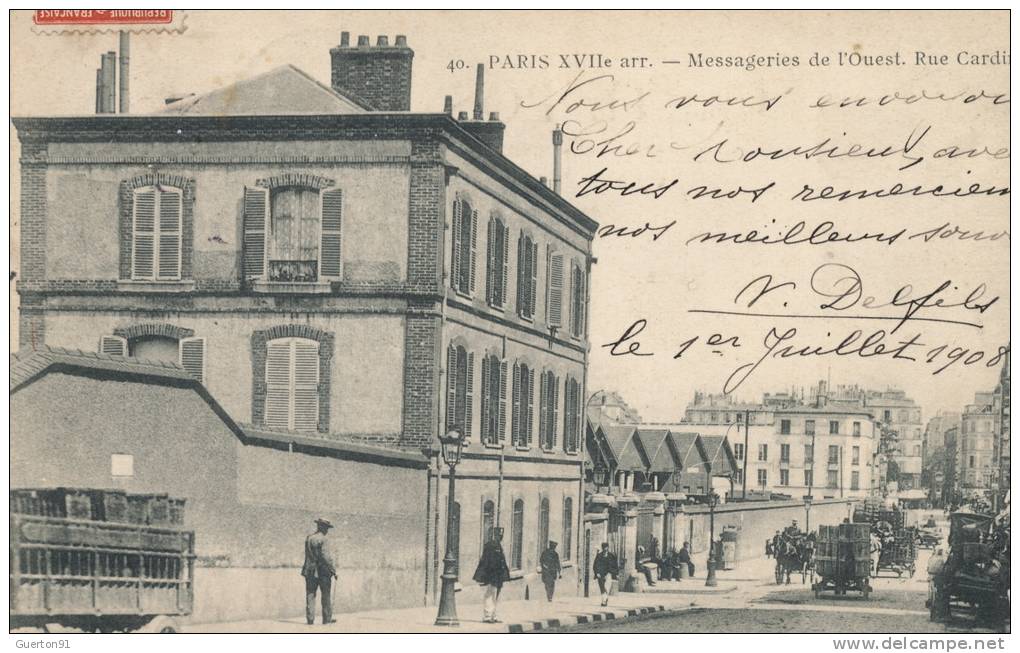 RÉPUBLIQUE FRANÇAISE
40. PARIS XVIIe arr. — Messageries de l'Ouest. Rue Cardi
Nous vous envoyon
Cher Monsieur, ave
tous nos remerciem
nos meilleurs souv
V. Delfils
le 1er Juillet 1908
Guerton91
www.delcampe.net